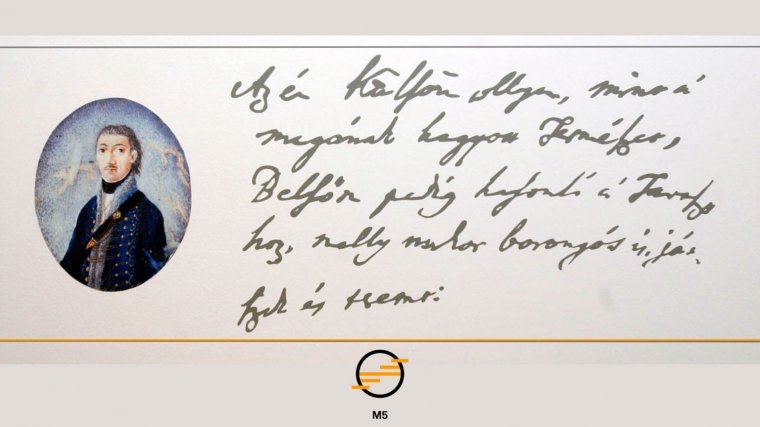 Az én Külsőm ollyan, mint á
magának hagyott Természet,
Belsőm pedig hasonló á Tavasz
hoz, melly mikor borongós is, já-
szik és teremt:
M5